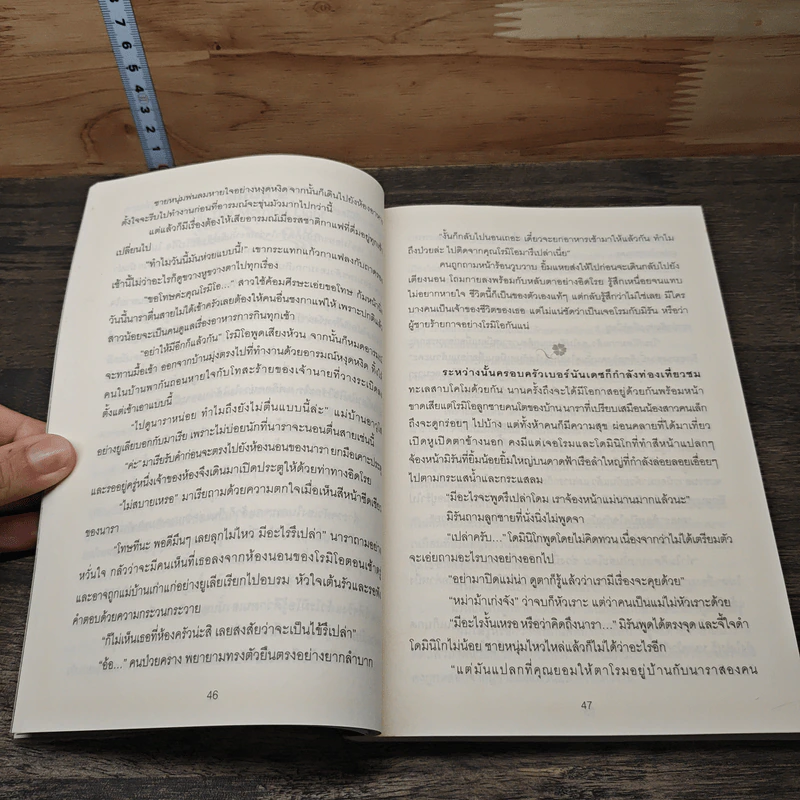 8
7
6
5
4
3
2
1
ชายหนุ่มพ่นลมหายใจอย่างหงุดหงิด จากนั้นก็เดินไปยังห้อง
ตั้งใจจะรีบไปทำงานก่อนที่อารมณ์จะขุ่นมัวมากไปกว่านี้
แต่แล้วก็มีเรื่องต้องให้เสียอารมณ์เมื่อรสชาติกาแฟที่ดื่มอยู่
เปลี่ยนไป
“ทำไมวันนี้มันห่วยแบบนี้!” เขากระแทกแก้วกาแฟลงกับถาด
เช้านี้ไม่ว่าอะไรก็ดูขวางหูขวางตาไปทุกเรื่อง
“ขอโทษค่ะคุณโรมิโอ...” สาวใช้ค้อมศีรษะเอ่ยขอโทษ ก้มหน้า
วันนี้นราตื่นสายไม่ได้เข้าครัวเลยต้องให้คนอื่นชงกาแฟให้ เพราะปกติแล้ว
สาวน้อยจะเป็นคนดูแลเรื่องอาหารการกินทุกเช้า
“อย่าให้มีอีกก็แล้วกัน” โรมิโอพูดเสียงห้วน จากนั้นก็หมดอารมณ์
จะทานมื้อเช้า ออกจากบ้านมุ่งตรงไปที่ทำงานด้วยอารมณ์หงุดหงิด
คนในบ้านพากันถอนหายใจกับโทสะร้ายของเจ้านายที่วางระเบิด
ตั้งแต่เช้าเอาแบบนี้
“ไปดูนาราหน่อย ทำไมถึงยังไม่ตื่นแบบนี้ล่ะ” แม่บ้าน
อย่างยูเลียบอกกับมาเรีย เพราะไม่บ่อยนักที่นาราจะนอนตื่นสายเช่นนี้
“ค่ะ” มาเรียรับคำก่อนจะตรงไปยังห้องนอนของนารา ยกมือเคาะประตู
และรออยู่ครู่หนึ่งเจ้าของห้องจึงเดินมาเปิดประตูให้ด้วยท่าทางอิดโรย
“ไม่สบายเหรอ” มาเรียถามด้วยความตกใจเมื่อเห็นสีหน้าซีดเซียว
ของนารา
“โทษทีนะ พอดีมึนๆ เลยลุกไม่ไหว มีอะไรรึเปล่า” นาราถามอย่าง
หวั่นใจ กลัวว่าจะมีคนเห็นที่เธอลงจากห้องนอนของโรมิโอตอนเช้า
และอาจถูกแม่บ้านเก่าแก่อย่างยูเลียเรียกไปอบรม หัวใจเต้นรัวและรอฟัง
คำตอบด้วยความกระวนกระวาย
“ก็ไม่เห็นเธอที่ห้องครัวน่ะสิ เลยสงสัยว่าจะเป็นไข้รึเปล่า”
“อ้อ...” คนป่วยคราง พยายามทรงตัวยืนตรงอย่างยากลำบาก
46
“งั้นก็กลับไปนอนเถอะ เดี๋ยวจะยกอาหารเช้ามาให้แล้วกัน ทำไม
ถึงป่วยล่ะ ไปติดจากคุณโรมิโอมารึเปล่าเนี่ย”
คนถูกถามหน้าร้อนวูบวาบ ยิ้มแหยส่งให้ไปก่อนจะเดินกลับไปยัง
เตียงนอน โถมกายลงพร้อมกับหลับตาอย่างอิดโรย รู้สึกเหนื่อยจนแทบ
ไม่อยากหายใจ ชีวิตนี้ก็เป็นของตัวเองแท้ๆ แต่กลับรู้สึกว่าไม่ใช่เลย มีใคร
บางคนเป็นเจ้าของชีวิตของเธอ แต่ไม่แน่ชัดว่าเป็นเจอโรมกับมิรัน หรือว่า
ผู้ชายร้ายกาจอย่างโรมิโอกันแน่
ระหว่างนั้นครอบครัวเบอร์นันเดซก็กำลังท่องเที่ยวชม
ทะเลสาบโคโมด้วยกัน นานครั้งถึงจะได้มีโอกาสอยู่ด้วยกันพร้อมหน้า
ขาดเสียแต่โรมิโอลูกชายคนโตของบ้าน นาราที่เปรียบเสมือนน้องสาวคนเล็ก
ถึงจะดูกร่อยๆ ไปบ้าง แต่ทั้งห้าคนก็มีความสุข ผ่อนคลายที่ได้มาเที่ยว
เปิดหูเปิดตาข้างนอก คงมีแต่เจอโรมและโดมินิโกที่ทำสีหน้าแปลกๆ
จ้องหน้ามิรันที่ยิ้มน้อยยิ้มใหญ่บนดาดฟ้าเรือลำใหญ่ที่กำลังล่องลอยเอื่อยๆ
ไปตามกระแสน้ำและกระแสลม
“มีอะไรจะพูดรึเปล่าโดม เราจ้องหน้าแม่นานมากแล้วนะ”
มิรันถามลูกชายที่นั่งนิ่งไม่พูดจา
“เปล่าครับ...” โดมินิโกพูดโดยไม่คิดทวน เนื่องจากว่าไม่ได้เตรียมตัว
จะเอ่ยถามอะไรบางอย่างออกไป
“อย่ามาปิดแม่น่า ดูตาก็รู้แล้วว่าเรามีเรื่องจะคุยด้วย”
“หม่าม้าเก่งจัง” ว่าจบก็หัวเราะ แต่ว่าคนเป็นแม่ไม่หัวเราะด้วย
“มีอะไรงั้นเหรอ หรือว่าคิดถึงนารา...” มิรันพูดได้ตรงจุด และจี้ใจดำ
โดมินิโกไม่น้อย ชายหนุ่มไหวไหล่แล้วก็ไม่ได้ว่าอะไรอีก
“แต่มันแปลกที่คุณยอมให้ตาโรมอยู่บ้านกับนาราสองคน
47